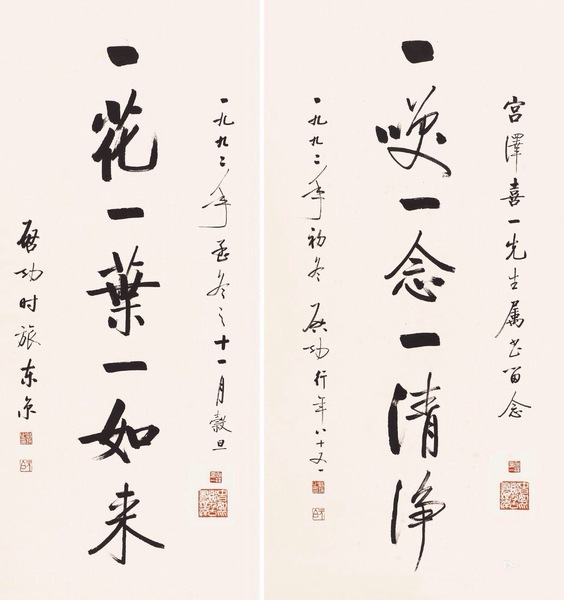 宫澤喜一先生属书留念
一咲一念一清浄
一九九二年初冬 啓功行年八十又一
一九九二年孟冬之十一月穀旦
一花一葉一如来
啓功时旅东京